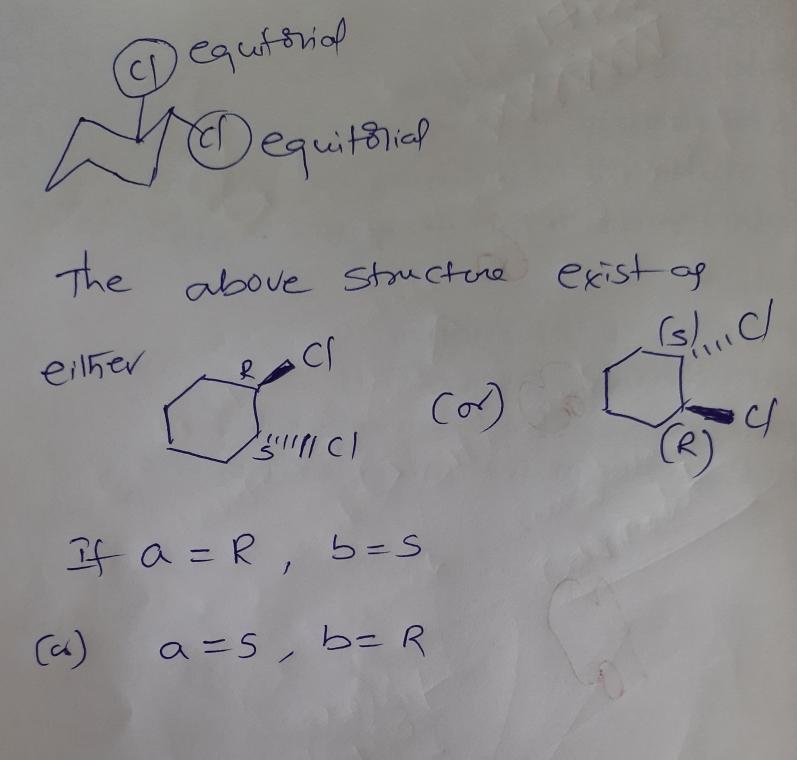 Cl equitorial
Cl equitorial
The above structure exist as
either R Cl (or) (S) Cl
S Cl (R) Cl
If a = R, b = S
(or) a = S, b = R